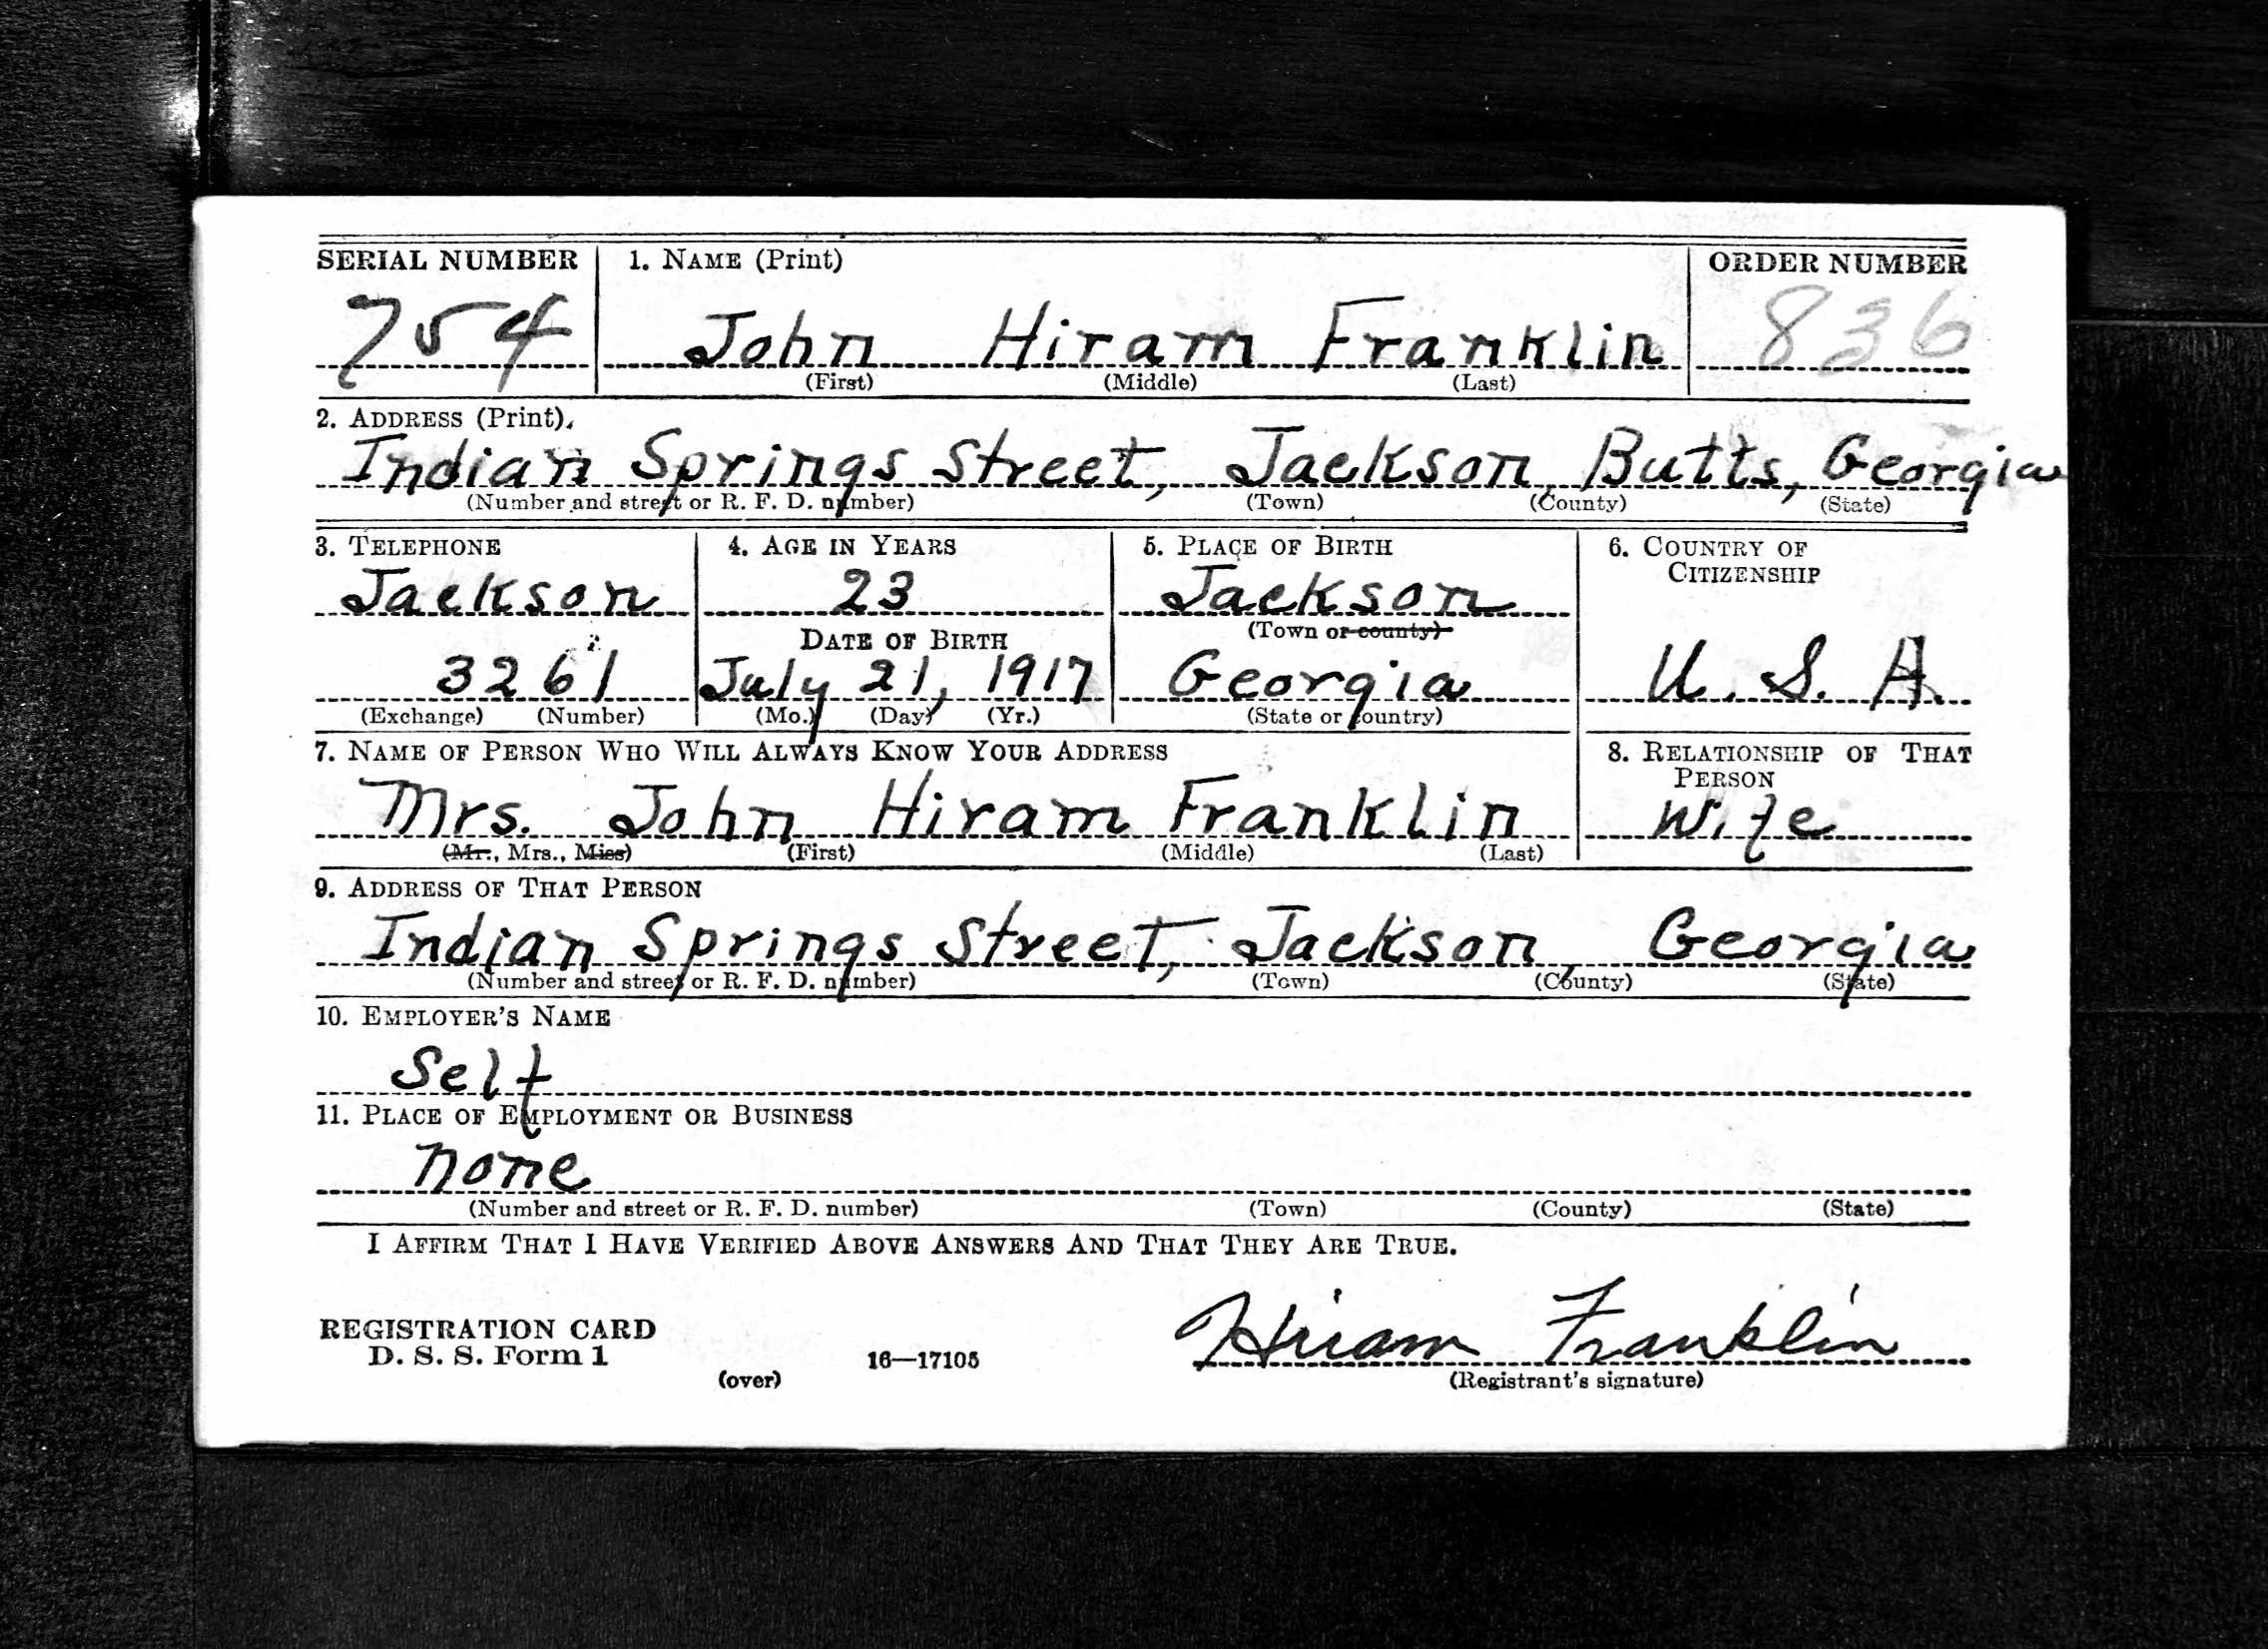 SERIAL NUMBER 1. NAME (Print) ORDER NUMBER
754 John Hiram Franklin 836
(First) (Middle) (Last)
2. ADDRESS (Print)
Indian Springs Street, Jackson, Butts, Georgia
(Number and street or R. F. D. number) (Town) (County) (State)
3. TELEPHONE 4. AGE IN YEARS 5. PLACE OF BIRTH 6. COUNTRY OF
CITIZENSHIP
Jackson 23 Jackson
DATE OF BIRTH (Town or county)
3261 July 21, 1917 Georgia U. S. A.
(Exchange) (Number) (Mo.) (Day) (Yr.) (State or country)
7. NAME OF PERSON WHO WILL ALWAYS KNOW YOUR ADDRESS 8. RELATIONSHIP OF THAT
PERSON
Mrs. John Hiram Franklin Wife
(Mr., Mrs., Miss) (First) (Middle) (Last)
9. ADDRESS OF THAT PERSON
Indian Springs Street, Jackson, Georgia
(Number and street or R. F. D. number) (Town) (County) (State)
10. EMPLOYER'S NAME
Self
11. PLACE OF EMPLOYMENT OR BUSINESS
none
(Number and street or R. F. D. number) (Town) (County) (State)
I AFFIRM THAT I HAVE VERIFIED ABOVE ANSWERS AND THAT THEY ARE TRUE.
Hiram Franklin
REGISTRATION CARD
D. S. S. Form 1 16—17105
(over) (Registrant's signature)